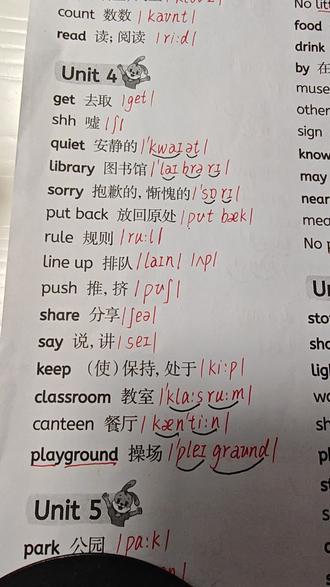 count 数数 /kaʊnt/
read 读; 阅读 /riːd/
Unit 4
get 去取 /get/
shh 嘘 /ʃ/
quiet 安静的 /ˈkwaɪət/
library 图书馆 /ˈlaɪbrərɪ/
sorry 抱歉的, 惭愧的 /ˈsɒrɪ/
put back 放回原处 /pʊt bæk/
rule 规则 /ruːl/
line up 排队 /laɪn/ /ʌp/
push 推, 挤 /pʊʃ/
share 分享 /ʃeə/
say 说, 讲 /seɪ/
keep （使）保持, 处于 /kiːp/
classroom 教室 /ˈklɑːsruːm/
canteen 餐厅 /kænˈtiːn/
playground 操场 /ˈpleɪgraʊnd/
Unit 5
park 公园 /pɑːk/
food
drink
by 在
muse
other
sign
know
may
near
mea
No p